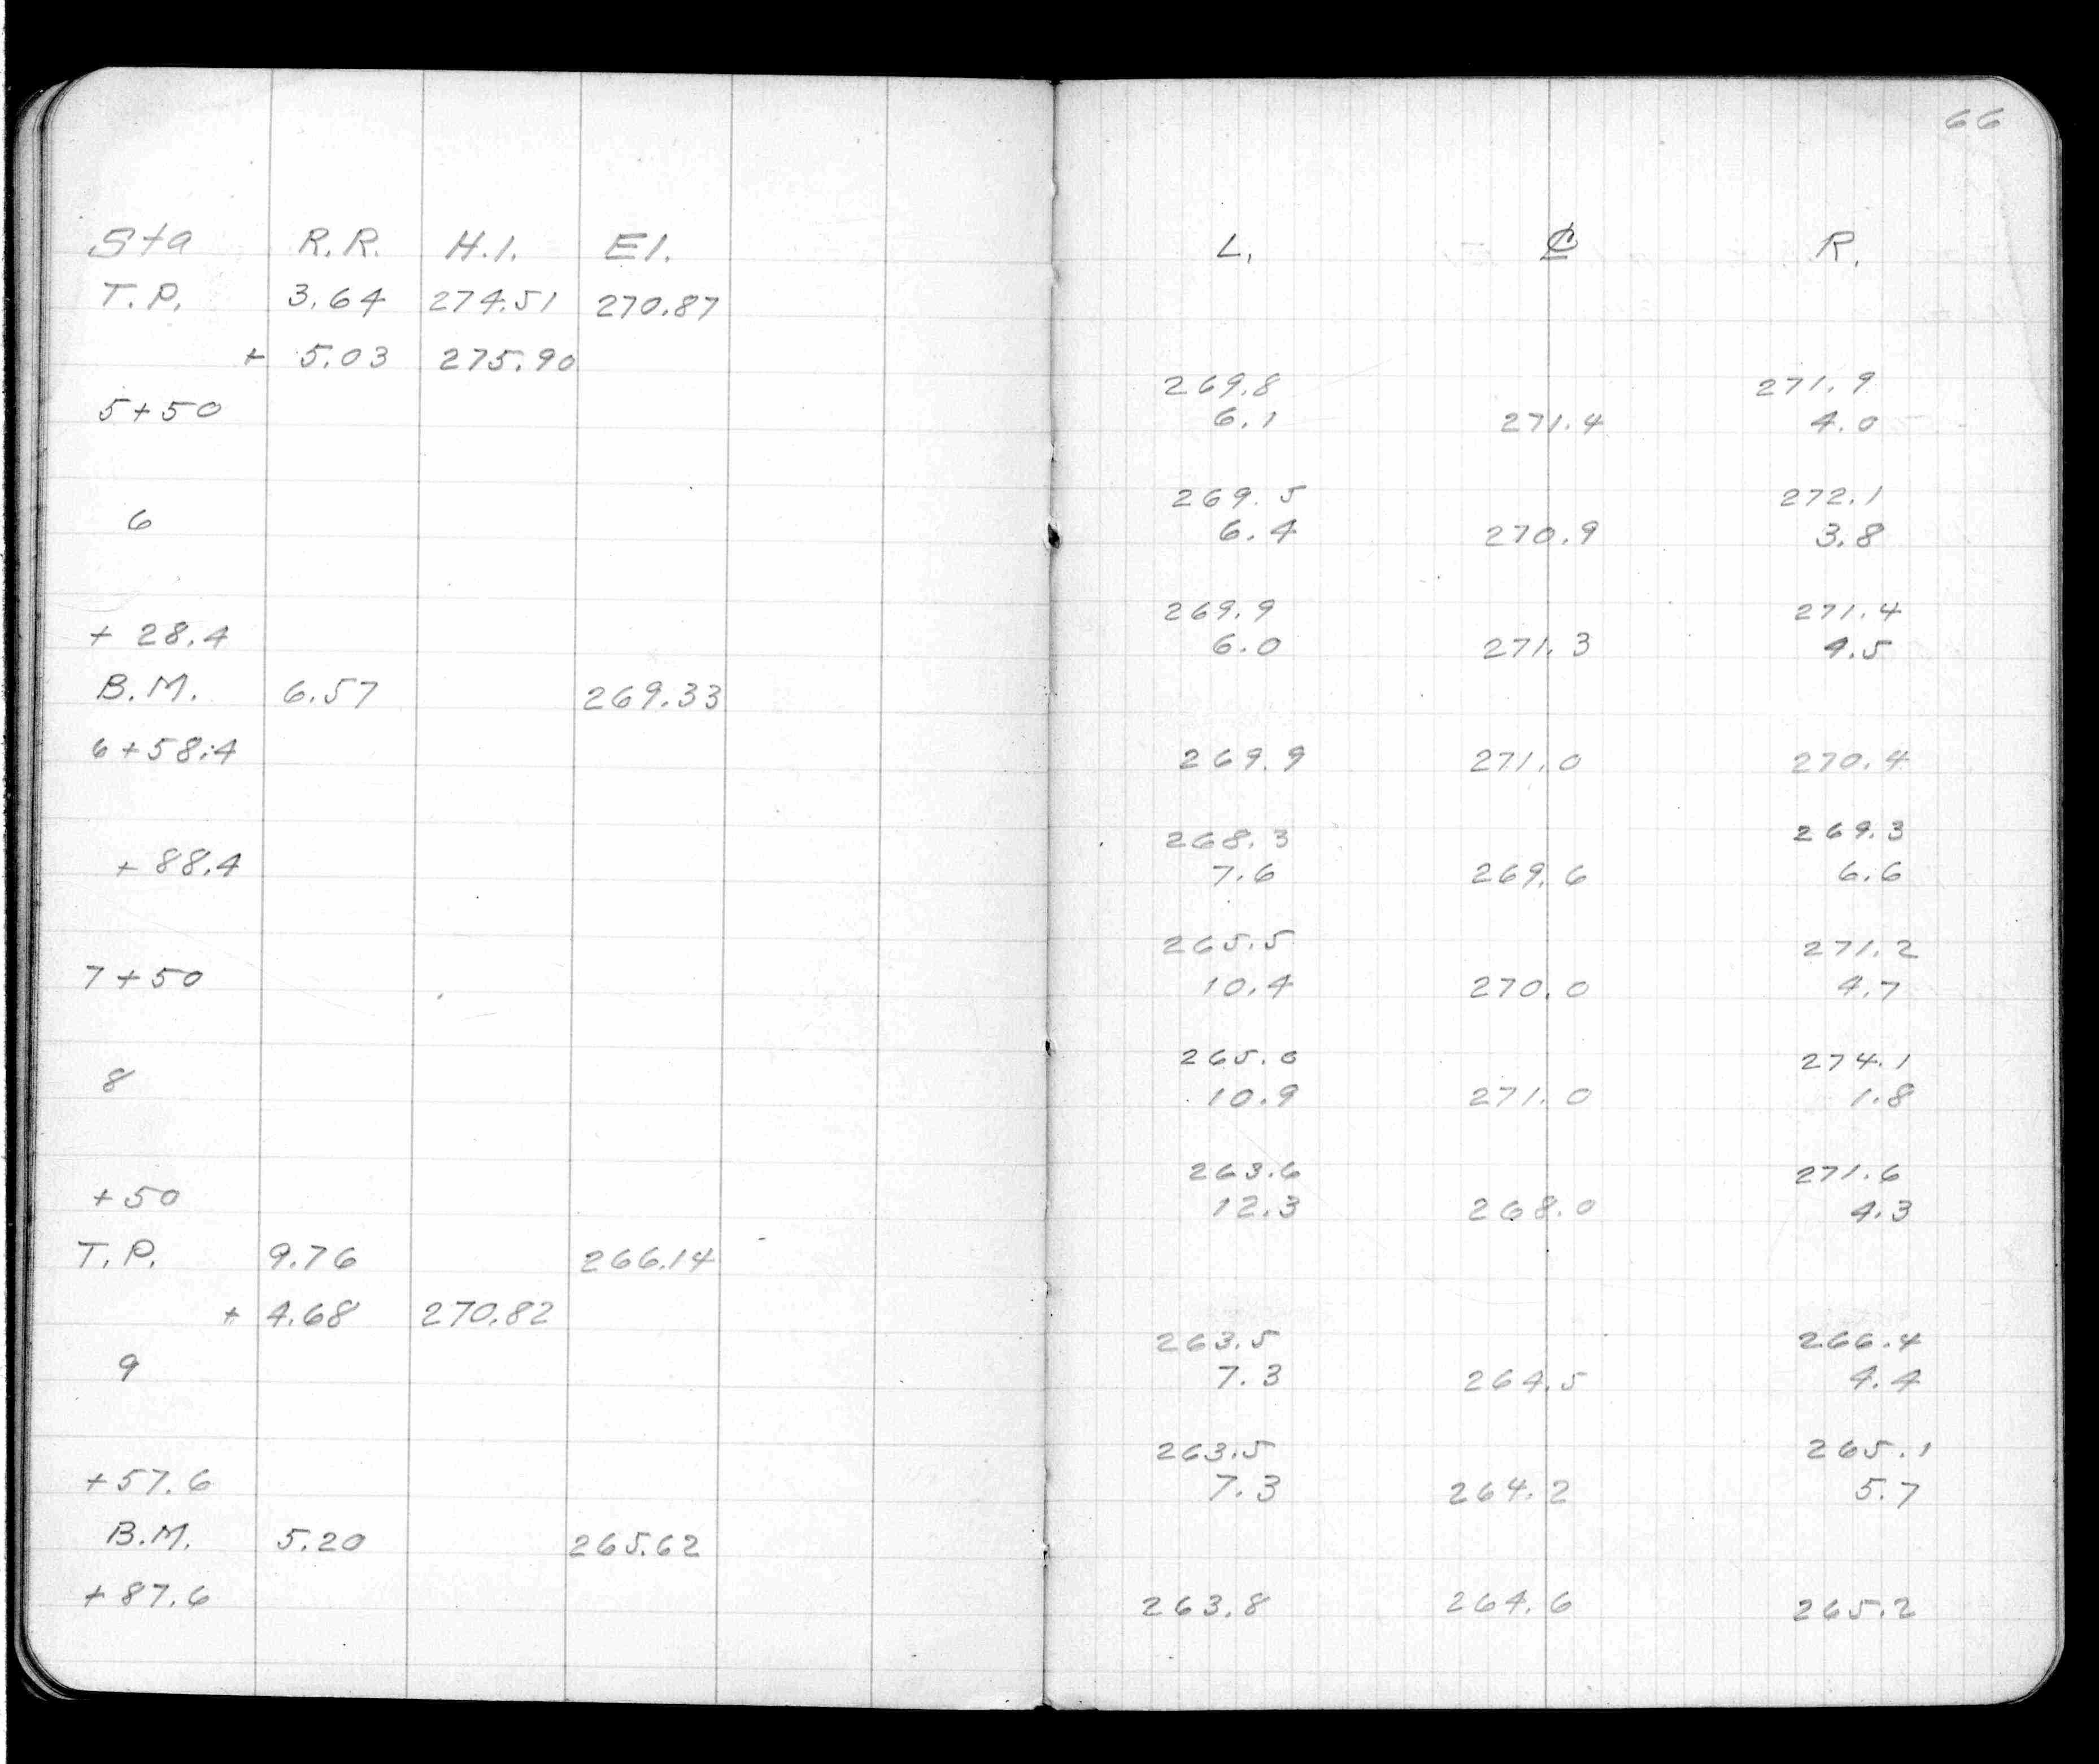 66
Sta R.R. H.I. El. L. ℄ R.
T.P. 3.64 274.51 270.87
+ 5.03 275.90
269.8 271.9
5+50 6.1 271.4 4.0
269.5 272.1
6 6.4 270.9 3.8
269.9 271.4
+ 28.4 6.0 271.3 4.5
B.M. 6.57 269.33
6+58.4 269.9 271.0 270.4
268.3 269.3
+ 88.4 7.6 269.6 6.6
265.5 271.2
7+50 10.4 270.0 4.7
265.0 274.1
8 10.9 271.0 1.8
263.6 271.6
+50 12.3 268.0 4.3
T.P. 9.76 266.14
+ 4.68 270.82
263.5 266.4
9 7.3 264.5 4.4
263.5 265.1
+57.6 7.3 264.2 5.7
B.M. 5.20 265.62
+87.6 263.8 264.6 265.2